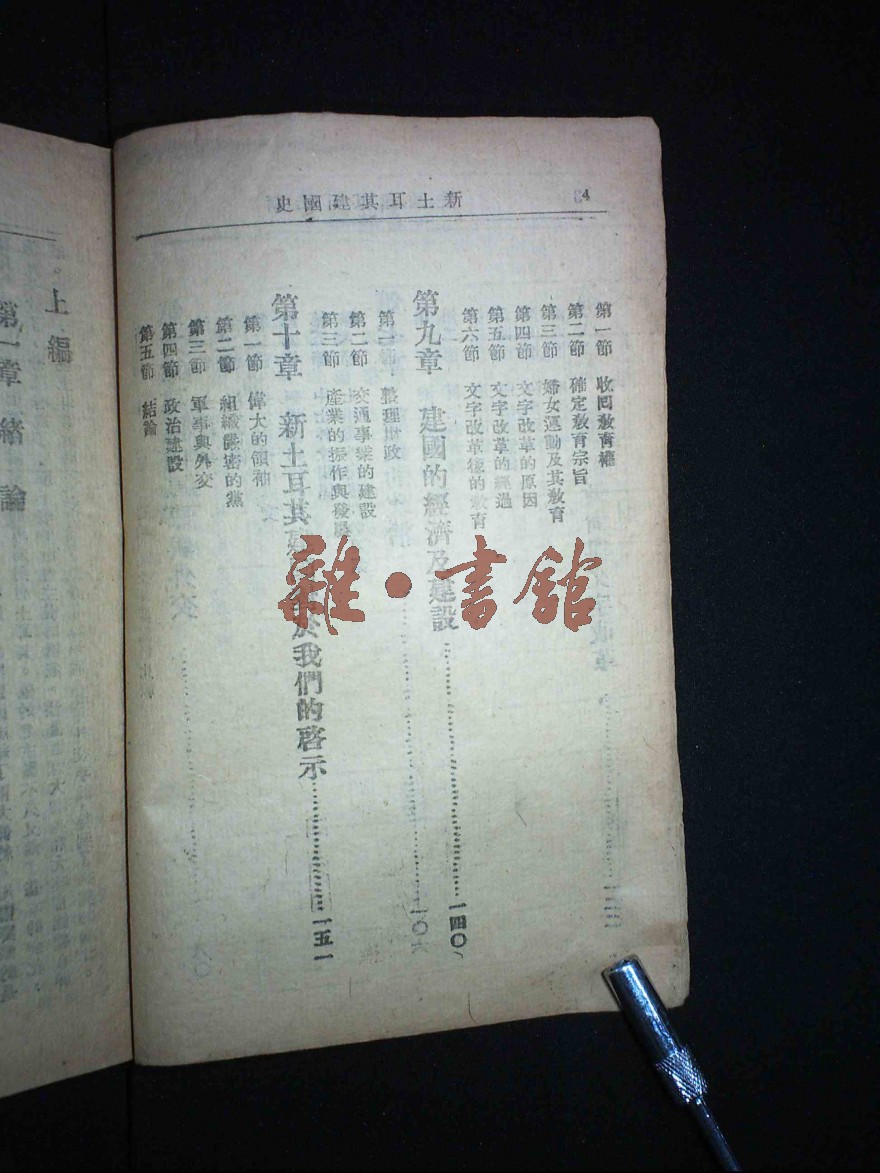 新土耳其建國史
4
第一節 收回敎育權
第二節 確定敎育宗旨
第三節 婦女運動及其敎育
第四節 文字改革的原因
第五節 文字改革的經過
第六節 文字改革後的敎育
第九章 建國的經濟及建設…………一四〇
第一節 整理財政
第二節 交通事業的建設
第三節 產業的振作與發展
第十章 新土耳其 於我們的啓示…………一五一
第一節 偉大的領袖
第二節 組織嚴密的黨
第三節 軍事與外交
第四節 政治建設
第五節 結論
上編
第一章 緒論
雜·書館